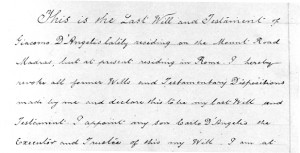 This is the Last Will and Testament of
Giacomo D'Angelis lately residing on the Mount Road
Madras, but at present residing in Rome. I hereby
revoke all former Wills and Testamentary Dispositions
made by me and declare this to be my last Will and
Testament I appoint my son Carlo D'Angelis the
Executor and Trustee of this my Will. I am at